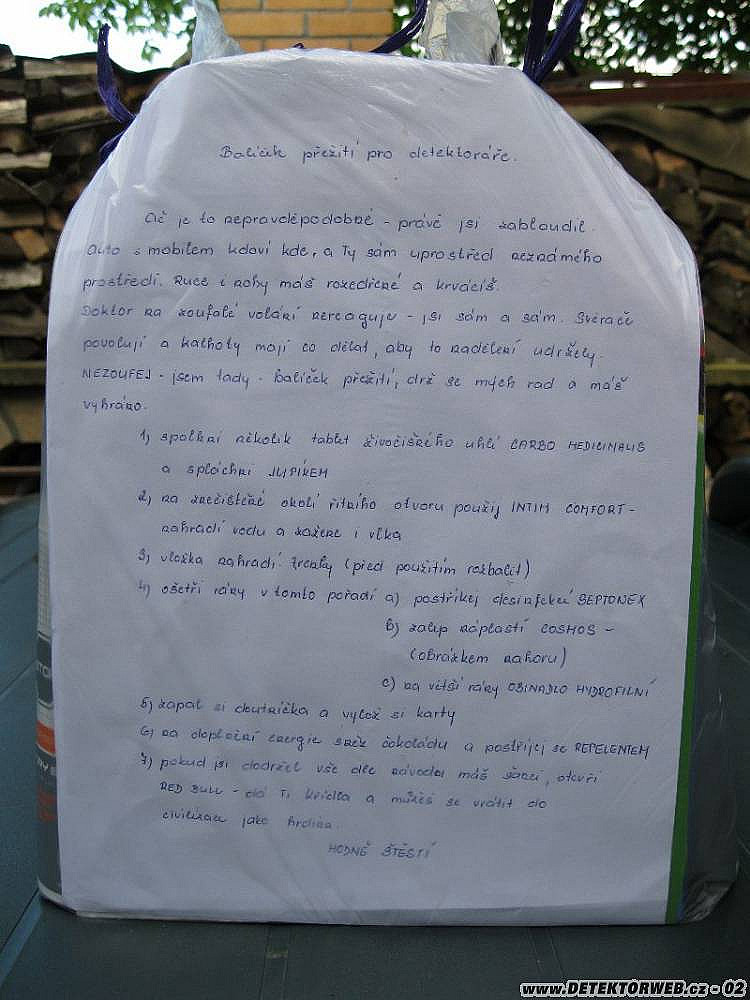 Balíček přežití pro detektoráře.
Ač je to nepravděpodobné - právě jsi zabloudil.
Auto s mobilem kdoví kde, a Ty sám uprostřed neznámého
prostředí. Ruce i nohy máš rozedřené a krvácíš.
Doktor na zoufalé volání nereaguje - jsi sám a sám. Svěrače
povolují a kalhoty mají co dělat, aby to nadělení udržely.
NEZOUFEJ - jsem tady - balíček přežití, drž se mých rad a máš
vyhráno.
1) spolkni několik tablet živočišného uhlí CARBO MEDICINALIS
a spláchni JUPÍKEM
2) na znečištěné okolí řitního otvoru použij INTIM COMFORT -
nahradí vodu a zažene i vlka
3) vložka nahradí trenky (před použitím rozbalit)
4) ošetři rány v tomto pořadí a) postříkej desinfekcí SEPTONEX
b) zalep náplastí COSMOS -
(obrázkem nahoru)
c) na větší rány OBINADLO HYDROFILNÍ
5) zapal si doutníčka a vylož si karty
6) na doplnění energie sněz čokoládu a postříkej se REPELENTEM
7) pokud jsi dodržel vše dle návodu máš šanci, otevři
RED BULL - dá Ti křídla a můžeš se vrátit do
civilizace jako hrdina.
HODNĚ ŠTĚSTÍ
www.DETEKTORWEB.cz - 02